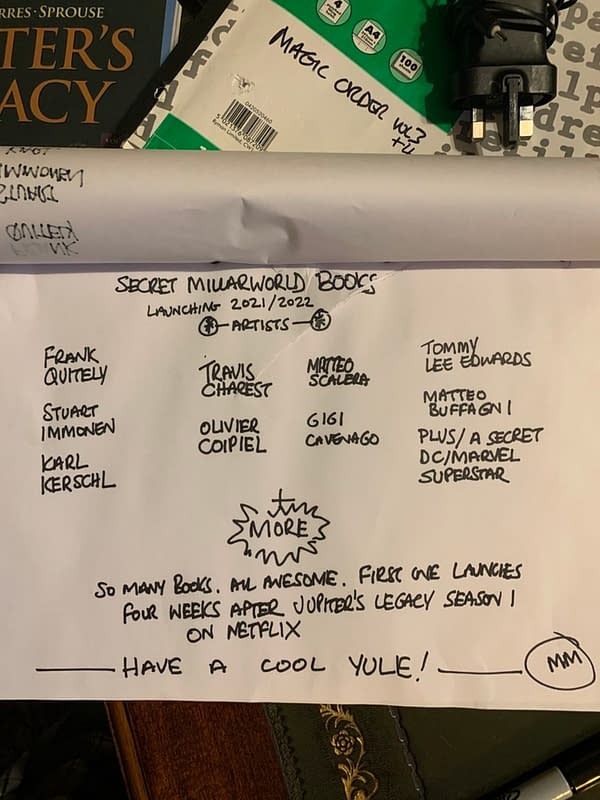 RRES · SPROUSE
TER'S
ACY
4
A4
100
MAGIC ORDER VOL 3
+4
SECRET MILLARWORLD BOOKS
LAUNCHING 2021/2022
ARTISTS
FRANK
QUITELY
STUART
IMMONEN
KARL
KERSCHL
TRAVIS
CHAREST
OLIVIER
COIPIEL
MATTEO
SCALERA
GIGI
CAVENAGO
TOMMY
LEE EDWARDS
MATTEO
BUFFAGNI
PLUS/A SECRET
DC/MARVEL
SUPERSTAR
+
MORE
SO MANY BOOKS. ALL AWESOME. FIRST ONE LAUNCHES
FOUR WEEKS AFTER JUPITER'S LEGACY SEASON 1
ON NETFLIX
HAVE A COOL YULE!
MM